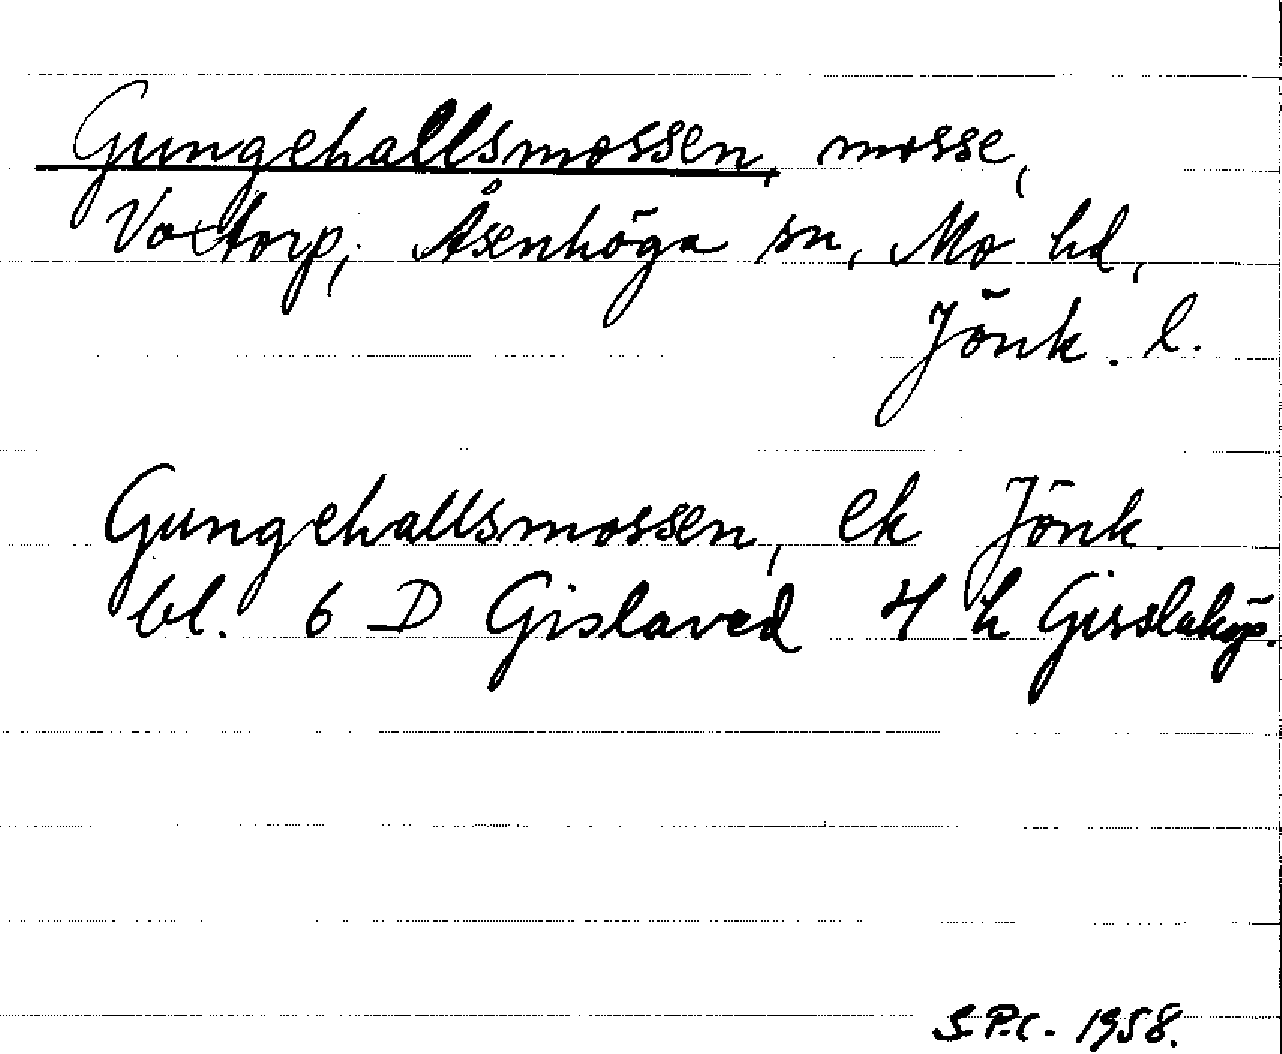 Gungehallsmossen, mosse,
Voxtorp, Åsenhöga sn, Mo hd,
Jönk. l.
Gungehallsmossen, ek Jönk
bl. 6 D Gislaved 4 h Gisslaköp.
S.P.C. 1958.